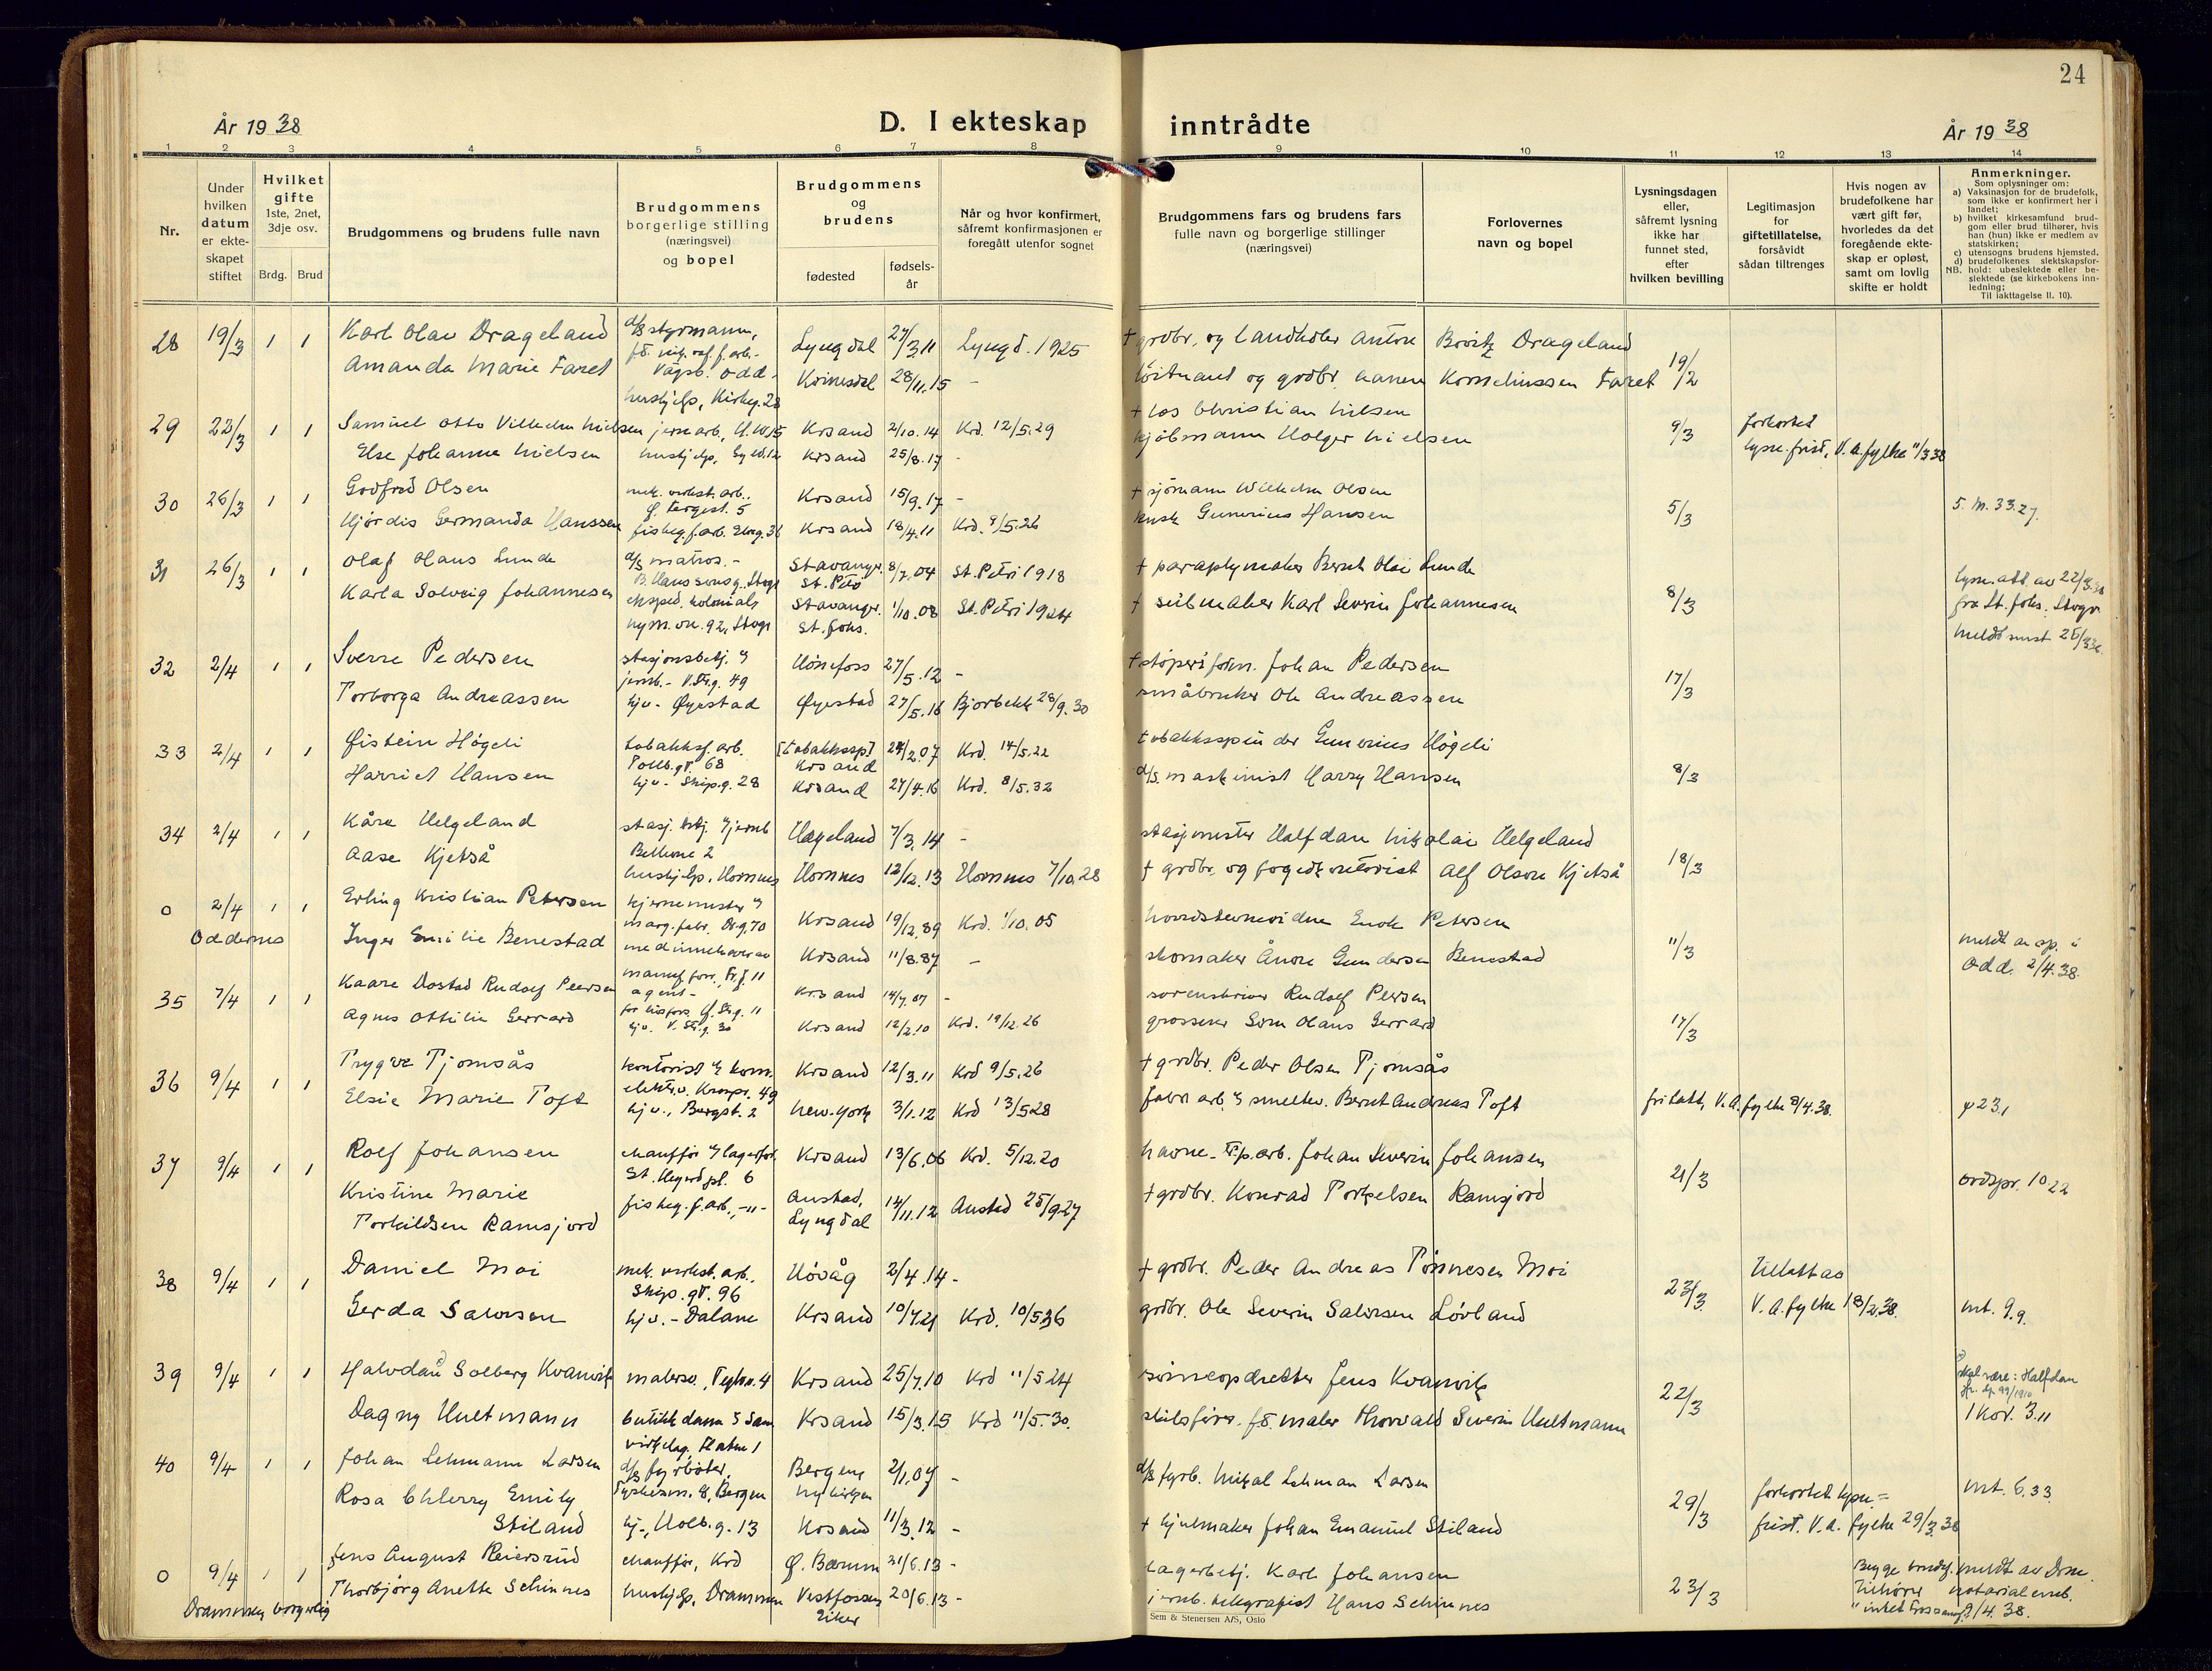 24
År 1938
D. I ekteskap inntrådte
År 1938
1 2 3 4 5 6 7 8 9 10 11 12 13 14
Nr.
Under hvilken datum er ekte-skapet stiftet
Hvilket gifte 1ste, 2net, 3dje osv.
Brdg. Brud
Brudgommens og brudens fulle navn
Brudgommens borgerlige stilling (næringsvei) og bopel
Brudgommens og brudens
fødested
fødsels-år
Når og hvor konfirmert, såfremt konfirmasjonen er foregått utenfor sognet
Brudgommens fars og brudens fars fulle navn og borgerlige stillinger (næringsvei)
Forlovernes navn og bopel
Lysningsdagen eller, såfremt lysning ikke har funnet sted, efter hvilken bevilling
Legitimasjon for giftetillatelse, forsåvidt sådan tiltrenges
Hvis nogen av brudefolkene har vært gift før, hvorledes da det foregående ekte-skap er opløst, samt om lovlig skifte er holdt
Anmerkninger.
Som oplysninger om:
a) Vaksinasjon for de brudefolk, som ikke er konfirmert her i landet;
b) hvilket kirkesamfund brud-gom eller brud tilhører, hvis han (hun) ikke er medlem av statskirken;
c) utensogns brudens hjemsted.
d) brudefolkenes slektskapsfor-hold: ubeslektede eller be-slektede (se kirkebokens inn-ledning;
NB.
Til iakttagelse II. 10).
28 19/3 1 1 Karl Olav Drageland d/s styrmann, Lyngdal 27/3 11 Lyngd. 1925 + grdbr. og landhdler Anton Broitz Drageland 19/2
Amanda Marie Faret Vågsb. Odd. Kvinesdal 28/11.15 - løitnant og grdbr. Hanen Korneliussen Faret
hushjelp, Kirkeg. 28
29 22/3 1 1 Samuel Otto Vilhelm Nielsen jernarb., Krsand 2/10.14 Krd. 12/5.29 + los Christian Nilsen 9/3 forkortet
Else Johanne Nielsen hushjelp, Krsand 25/8.17 - kjøbmann Holger Nielsen lysn.frist, V.A.fylke 11/3 38
30 26/3 1 1 Godfred Olsen mek. verkst. arb., Krsand 15/9.17 - + sjømann Wilhelm Olsen 5/3 5. M. 33.27.
Ø. Torgest. 5
Hjørdis Germanda Hanssen Krsand 18/4.11 Krd. 9/5.26 kusk Gunerius Hansen
31 26/3 1 1 Olaf Olaus Lunde d/s matros. - Stavanger St. Petri 8/7.04 St. Petri 1918 + paraplymaker Bernt Olai Lunde 8/3 lysn.att. av 22/3.38
Karla Solveig Johannesen eksped. kolonial Stavanger St. Johs. 1/10.08 St. Petri 1924 + seilmaker Karl Severin Johannesen fra St. Johs. Stvgr.
Nym.vn. 92, Stvgr
32 2/4 1 1 Sverre Pedersen stasjonsbetj. v/ jernb. - V. Str.g. 49 Hønefoss 27/5.12 - + støperiform. Johan Pedersen 17/3
Torborga Andreassen hjv. Øyestad Øyestad 27/5.16 Bjorbekk 28/9.30 småbruker Ole Andreassen
33 2/4 1 1 Øistein Høgeli tobakksf. arb. Tollb.gt. 68 [tobakkssp] Krsand 24/2.07 Krd. 14/5.22 tobakksspinder Gunerius Høgeli 8/3
Harriet Hansen hjv. - Skip.g. 28 Krsand 27/4.16 Krd. 8/5.32 d/s. maskinist Harry Hansen
34 2/4 1 1 Kåre Helgeland stasj. betj. v/jernb Bellevue 2 Hægeland 7/3.14 - stasjmester Halfdan Nikolai Helgeland 18/3
Aase Kjetså hushjelp, Hornnes Hornnes 12/12.13 Hornnes 7/10.28 + grdbr. og fogedkontorist Alf Olson Kjetså
0 2/4 1 1 Erling Kristian Petersen kjernemester v/ marg.fabr. Dr.g. 70 Krsand 19/12.89 Krd. 1/10.05 hovedstevnevidne Enok Petersen 11/3 meldt av sp. i
Oddernes Inger Emilie Benestad medinnehaver av Krsand 11/8.87 - skomaker Ånon Gundersen Benestad Odd. 2/4.38.
35 7/4 1 1 Kaare Dostad Rudolf Peersen agent - Krsand 14/7.07 - sorenskriver Rudolf Peersen 17/3
Agnes Ottilie Gerrard hjv. V. Str.g. 30 Krsand 12/2.10 Krd. 19/12.26 grosserer Sørn Olaus Gerrard
36 9/4 1 1 Trygve Tjomsås kontorist v/ kom. elektr.v. Kronpr. 49 Krsand 12/3.11 Krd 9/5.26 + grdbr. Peder Olsen Tjomsås
Elsie Marie Toft hjv., Bergst. 2 New-York 3/1.12 Krd 13/5 28 fabr. arb. v/ smeltev. Bernt Andreas Toft fritatt, V.A.fylke 8/4.38. ψ 23,1
37 9/4 1 1 Rolf Johansen chauffør v/lagerfor. St. Hegerdpl. 6 Krsand 13/6.06 Krd. 5/12.20 havne-Tr.p.arb. Johan Severin Johansen 21/3 ordspr. 10.22
Kristine Marie fiskeg.f.arb., -"- Austad, Lyngdal 14/11.12 Austad 25/9.27 + grdbr. Konrad Torkelsen Ramsjord
Torkildsen Ramsjord
38 9/4 1 1 Daniel Moi mek. verkst. arb., Skip.gt. 96 Høvåg 2/4.14 - + grdbr. Peder Andreas Tønnesen Moi 23/3 tillatt av
Gerda Salvesen hjv. - Dalane Krsand 10/7.21 Krd. 10/5.36 grdbr. Ole Severin Salvesen Løvland V.A.fylke 18/2.38. mt. 9.9.
39 9/4 1 1 Halvdan Solberg Kvanvik malersv., Teglvn. 4 Krsand 25/7.10 Krd 11/5 24 svineopdretter Jens Kvanvik 22/3 skal være: Halfdan
jfr. dp. 99/1910
Dagny Hultmann butikkdame v/ Sam Krsand 15/3.15 Krd 11/5.30. skibsfører. fv. maler Thorvald Severin Hultmann 1 Kor. 3.11
40 9/4 1 1 Johan Lehmann Larsen d/s fyrbøter, Bergen Nykirken 2/1.07 - d/s fyrb. Mikal Lehman Larsen 29/3 forkortet lysn.= mt. 6.33.
Rosa Chlerry Emily
Stiland hj-, Holb.g. 13 Krsand 11/3.12 - + hjulmaker Johan Emanuel Stiland frist. V.A. fylke 29/3.38
0 9/4 1 1 Jens August Reiersrud chauffør, Krd Ø. Bærum 31/6.13 - lagerbetj. Karl Johansen 23/3 meldt av Drm.
Drammen borgerlig Thorbjørg Anette Schinnes hushjelp, Drammen Vestfossen Eiker 20/6.13 - jernb. telegrafist Hans Schinnes notarialemb.
9/4.38.
Sem & Stenersen A/S, Oslo